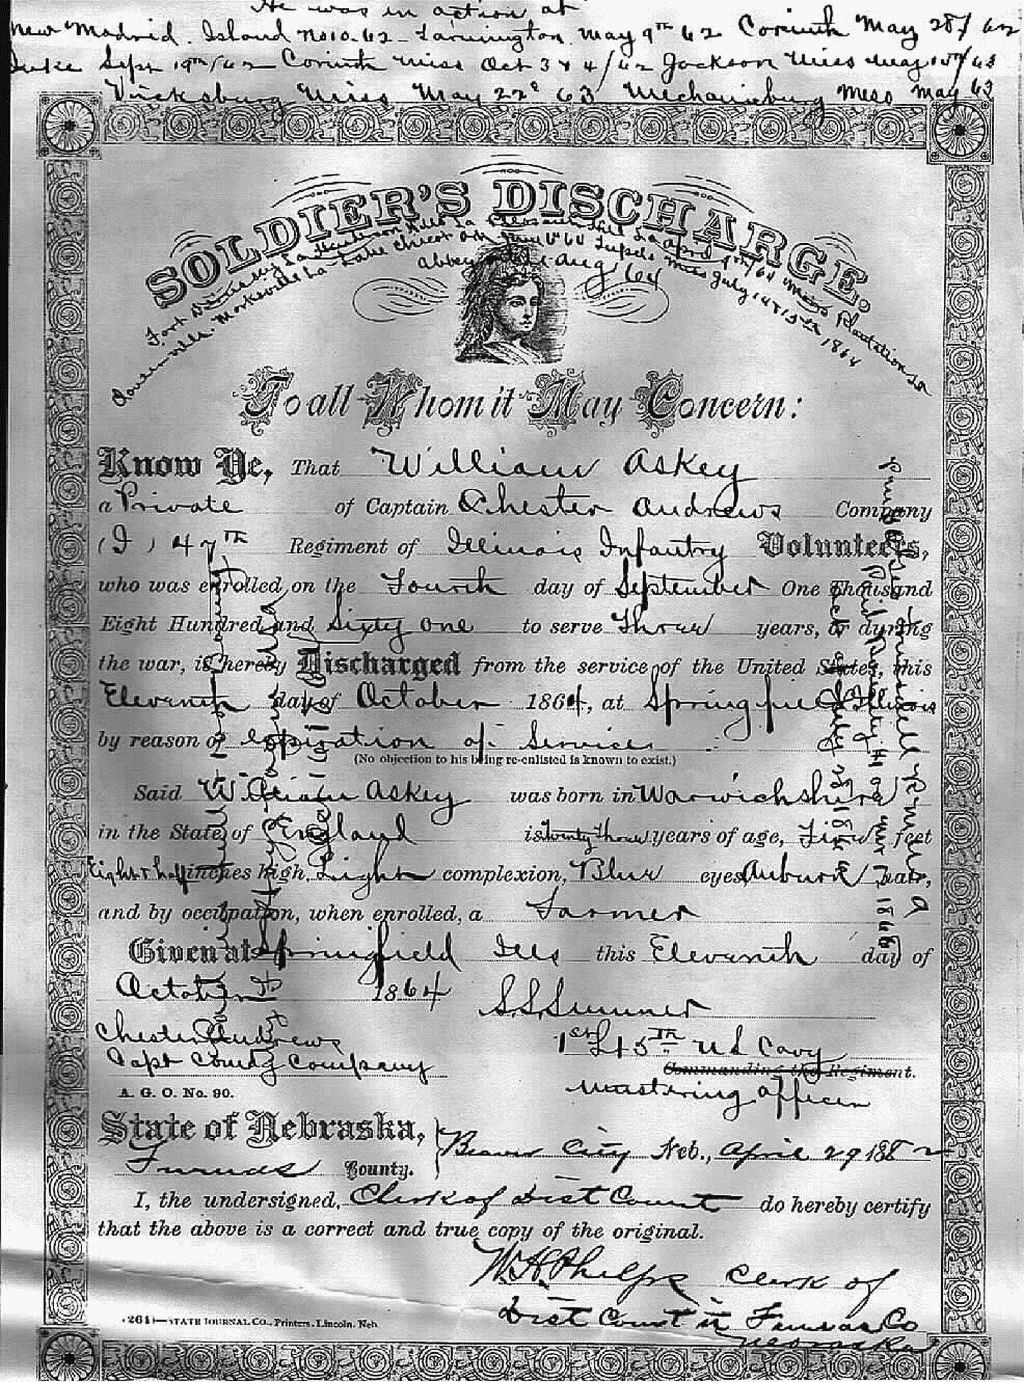 He was in action at
New Madrid. Island No 10. 62 - Farmington may 9th 62 Corinth May 28/62
Iuka Sept 19th/62 Corinth Miss Oct 3 & 4/62 Jackson Miss may /63
Vicksburg Miss May 22d 63 Mechanicsburg Miss May 63
SOLDIER'S DISCHARGE.
Fort La Henderson Hill La Pleasant Hill La April 9th/64 Plantation La
Marksville La Lake Chicot Ark June 6th 64 Tupelo Miss July 14 & 15th 1864
Abbeville Aug 64
To all Whom it May Concern:
Know Ye, That William Askey
a Private of Captain Chester Andrews Company
(I) 47TH Regiment of Illinois Infantry Volunteers,
who was enrolled on the Fourth day of September One Thousand
Eight Hundred and Sixty one to serve Three years, or during
the war, is hereby Discharged from the service of the United States, this
Eleventh day of October 1864, at Springfield Illinois
by reason of expiration of Service
(No objection to his being re-enlisted is known to exist.)
Said William Askey was born in Warwickshire
in the State of England is twenty three years of age, Five feet
Eight & half inches high, Light complexion, Blue eyes, Auburn hair,
and by occupation, when enrolled, a Farmer
Given at Springfield Ills this Eleventh day of
October 1864
S.S. Sumner
1st Lt 5TH U S Cavy
Commanding the Regiment.
mustering officer
Chester Andrews
Capt Comdg Company
A. G. O. No. 90.
State of Nebraska,
Furnas County.
Beaver City Neb., April 29 1882
I, the undersigned, Clerk of Dist Court do hereby certify
that the above is a correct and true copy of the original.
W. H. Phelps Clerk of
Dist Court in Furnas Co
Nebraska
(261)—STATE JOURNAL CO., Printers, Lincoln, Neb.